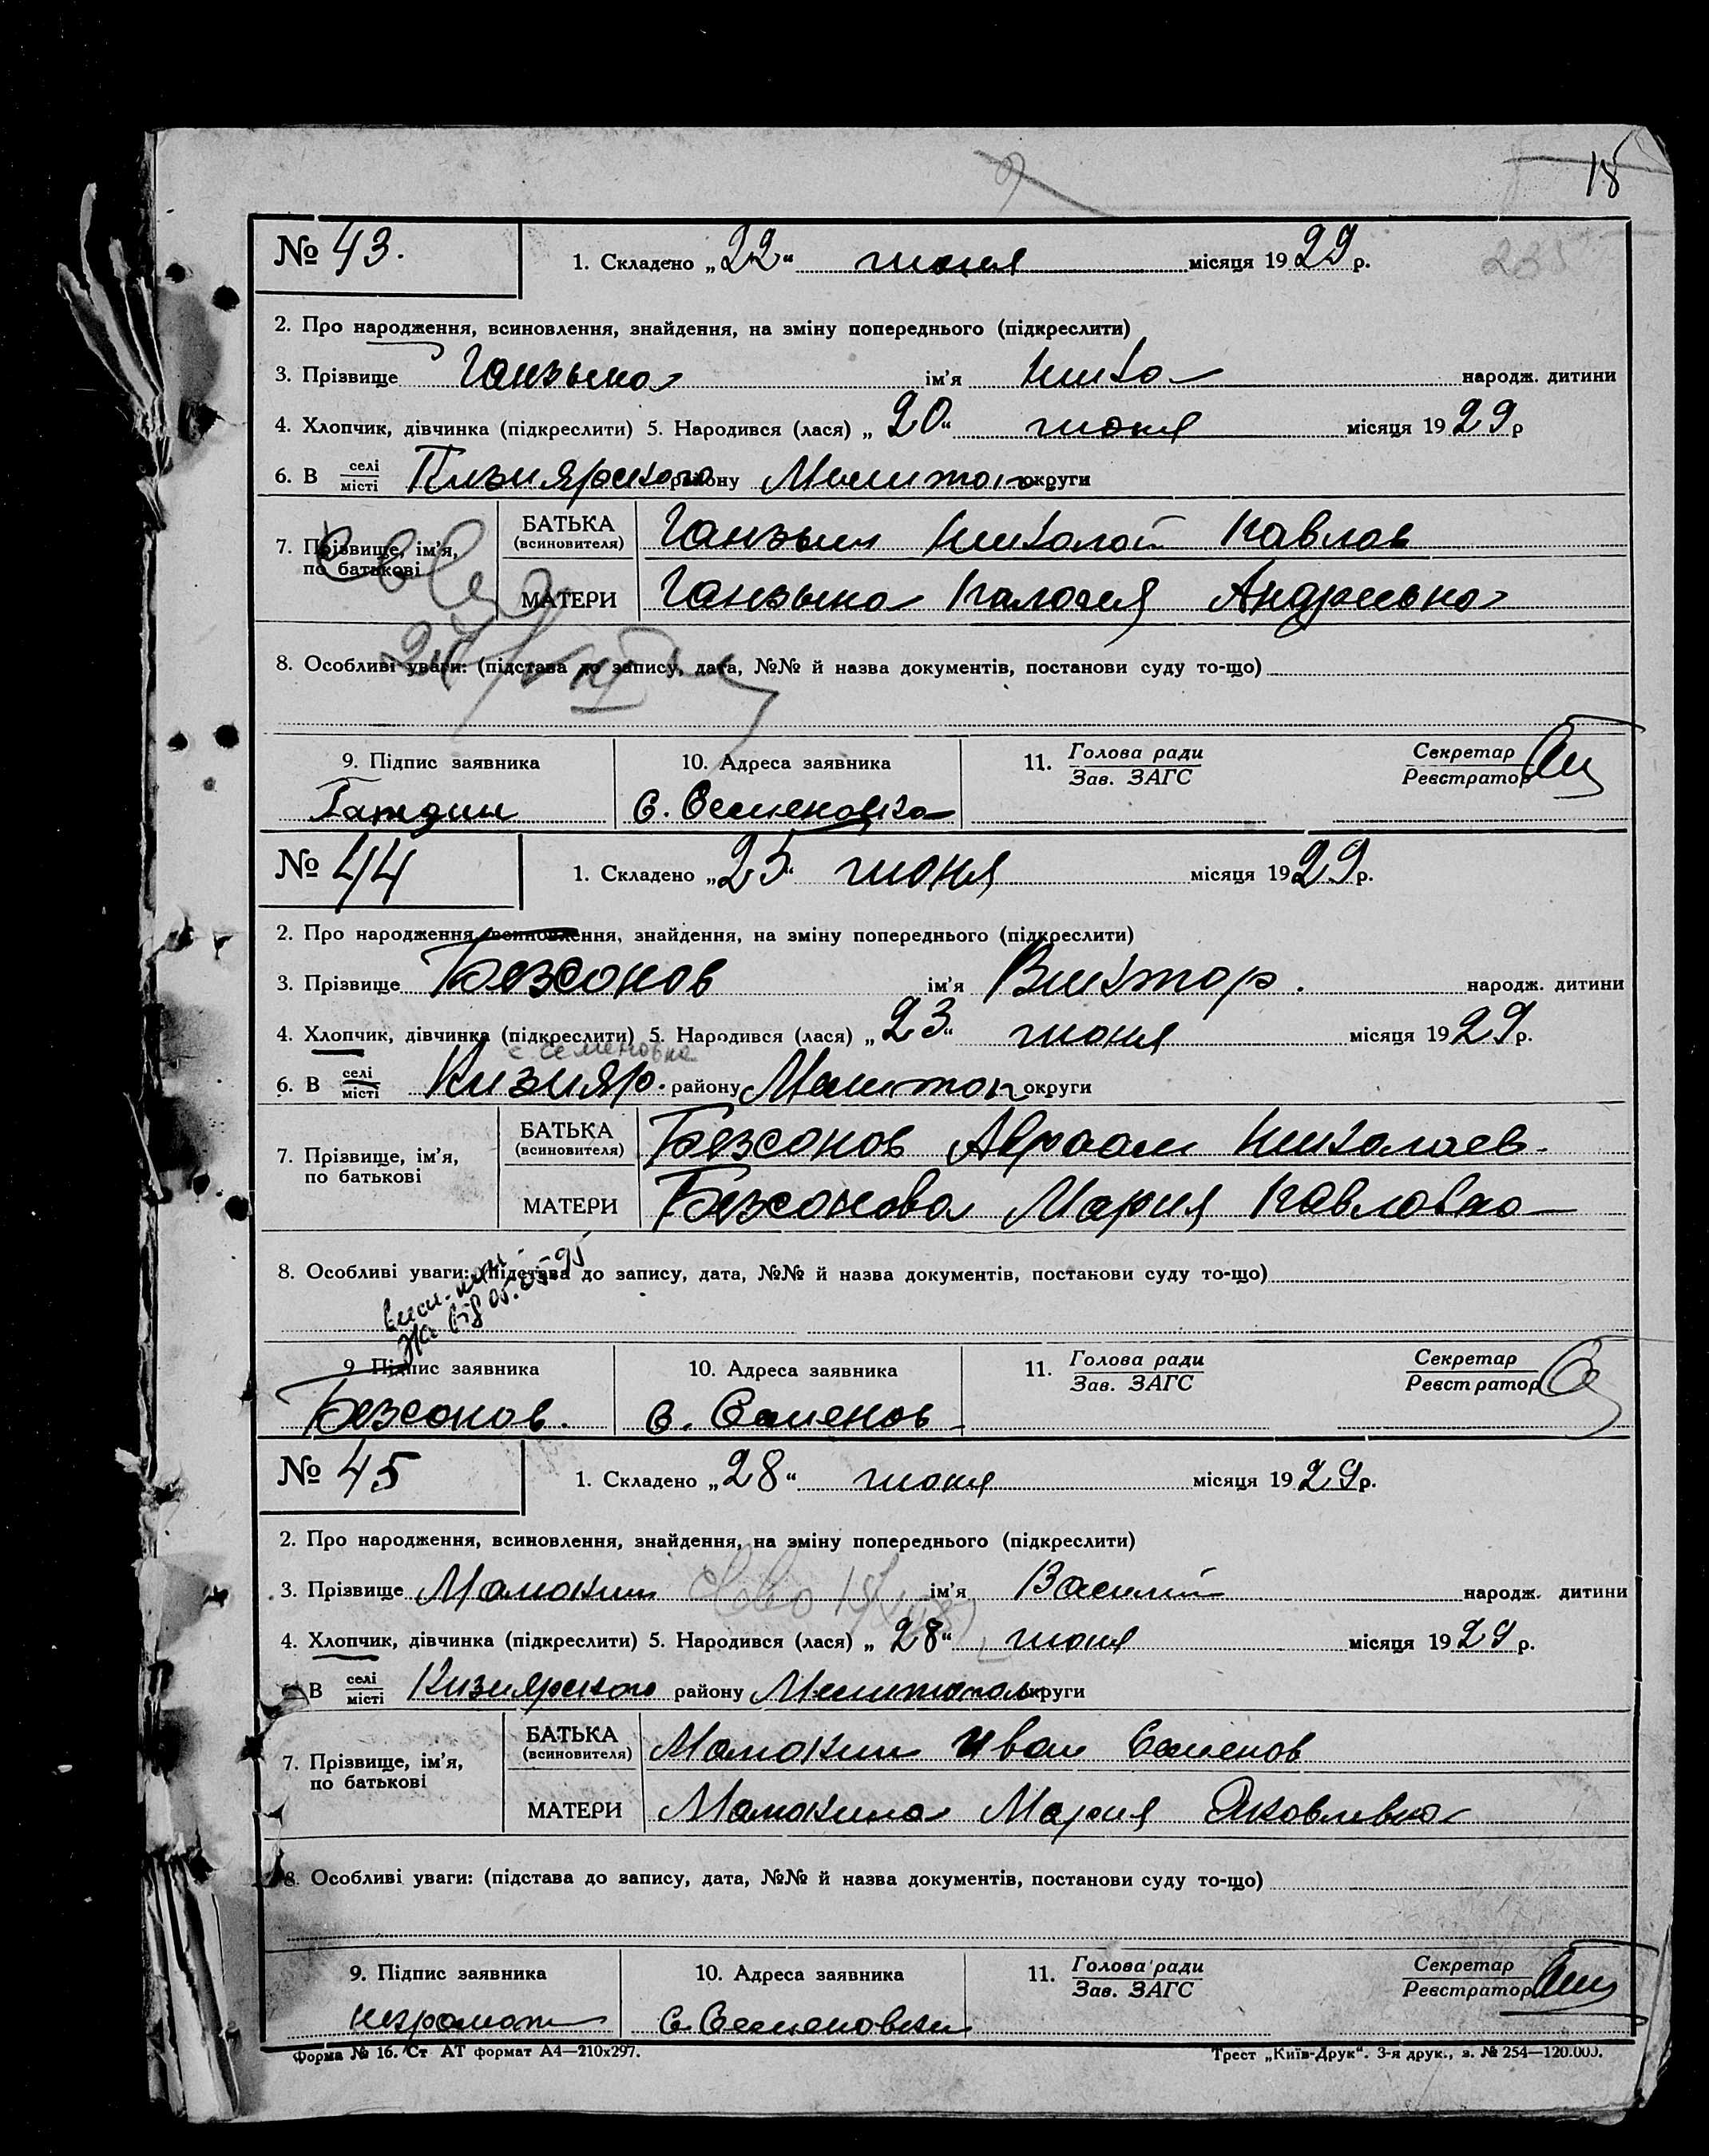 15
№ 43.
1. Складено „22“ июня місяця 1929 р.
2. Про народження, всиновлення, знайдення, на зміну попереднього (підкреслити)
3. Прізвище ім'я народж. дитини
4. Хлопчик, дівчинка (підкреслити) 5. Народився (лася) „20“ июня місяця 1929 р
6. В селі місті району Мелитоп округи
7. Прізвище, ім'я, по батькові
БАТЬКА (всиновителя) Николай Павлов
МАТЕРИ Андреевна
8. Особливі уваги: (підстава до запису, дата, №№ й назва документів, постанови суду то-що)
9. Підпис заявника
10. Адреса заявника
11. Голова ради Зав. ЗАГС
Секретар Реєстратор
с. Семеновка
№ 44
1. Складено „25“ июня місяця 1929 р.
2. Про народження, всиновлення, знайдення, на зміну попереднього (підкреслити)
3. Прізвище Безсонов ім'я Виктор. народж. дитини
4. Хлопчик, дівчинка (підкреслити) 5. Народився (лася) „23“ июня місяця 1929 р.
с Семеновка
6. В селі місті Кизияр. району Мелитоп округи
7. Прізвище, ім'я, по батькові
БАТЬКА (всиновителя) Безсонов Авраам Николаев.
МАТЕРИ Безсонова Мария Павловна
8. Особливі уваги: (підстава до запису, дата, №№ й назва документів, постанови суду то-що)
9. Підпис заявника
10. Адреса заявника
11. Голова ради Зав. ЗАГС
Секретар Реєстратор
Безсонов.
с. Семенов
№ 45
1. Складено „28“ июня місяця 1929 р.
2. Про народження, всиновлення, знайдення, на зміну попереднього (підкреслити)
3. Прізвище Мамокин ім'я Василий народж. дитини
4. Хлопчик, дівчинка (підкреслити) 5. Народився (лася) „28“ июня місяця 1929 р.
В селі місті Кизиярского району Мелитополь округи
7. Прізвище, ім'я, по батькові
БАТЬКА (всиновителя) Мамокин Иван Семенов
МАТЕРИ Мамокина Мария Яковлевна
8. Особливі уваги: (підстава до запису, дата, №№ й назва документів, постанови суду то-що)
9. Підпис заявника
10. Адреса заявника
11. Голова ради Зав. ЗАГС
Секретар Реєстратор
неграмот
с. Семеновки
Форма № 16. Ст АТ формат А4—210х297.
Трест „Київ-Друк“. 3-я друк., з. № 254—120.000.